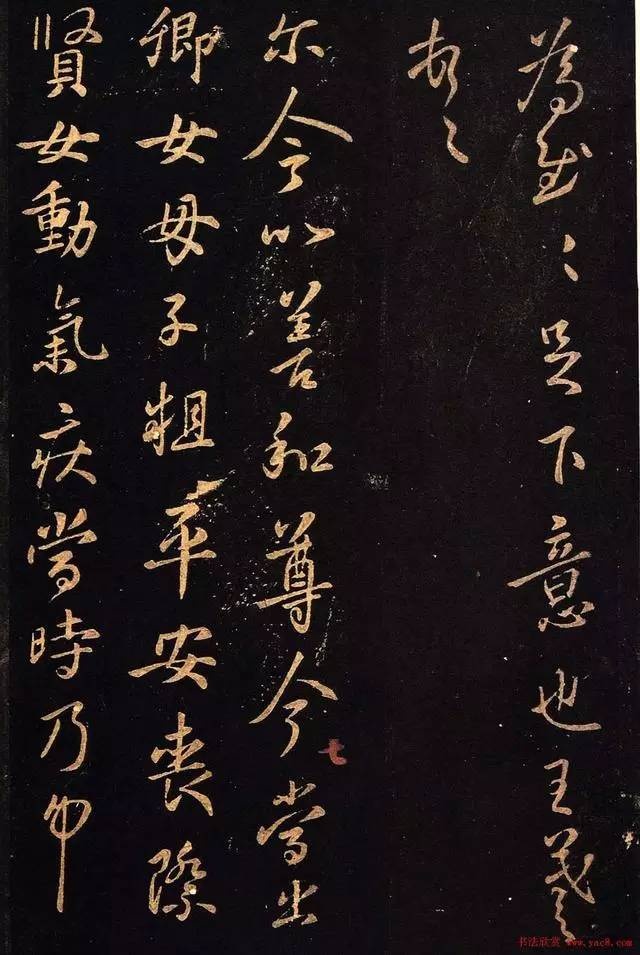 為〻足下意也王羲之
尔今以善和尊今當出
卿女母子粗平安喪際
賢女動氣疾當時乃
七
书法欣赏 www.yac8.com